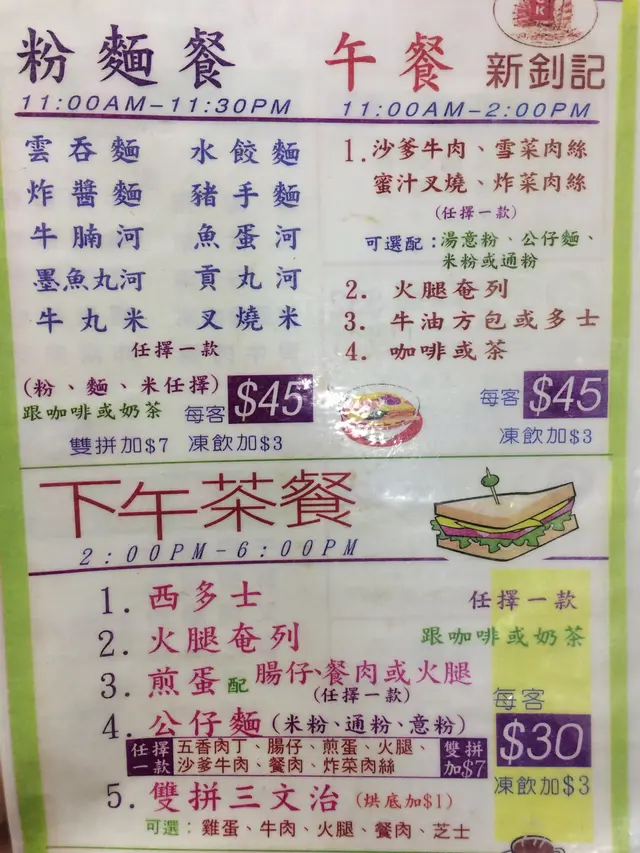 粉麵餐
11:00AM-11:30PM
雲吞麵 水餃麵
炸醬麵 豬手麵
牛腩河 魚蛋河
墨魚丸河 貢丸河
牛丸米 叉燒米
任擇一款
(粉、麵、米任擇)
跟咖啡或奶茶 每客 $45
雙拼加$7 凍飲加$3
午餐 新釗記
11:00AM-2:00PM
1.沙爹牛肉、雪菜肉絲
蜜汁叉燒、炸菜肉絲
(任擇一款)
可選配:湯意粉、公仔麵、
米粉或通粉
2. 火腿奄列
3. 牛油方包或多士
4. 咖啡或茶
每客 $45
凍飲加$3
下午茶餐
2:00PM-6:00PM
1. 西多士 任擇一款
2. 火腿奄列 跟咖啡或奶茶
3. 煎蛋配腸仔、餐肉或火腿
(任擇一款)
4. 公仔麵(米粉、通粉、意粉)
任擇一款 五香肉丁、腸仔、煎蛋、火腿、
沙爹牛肉、餐肉、炸菜肉絲 雙拼加$7
5. 雙拼三文治(烘底加$1)
可選：雞蛋、牛肉、火腿、餐肉、芝士
每客
$30
凍飲加$3